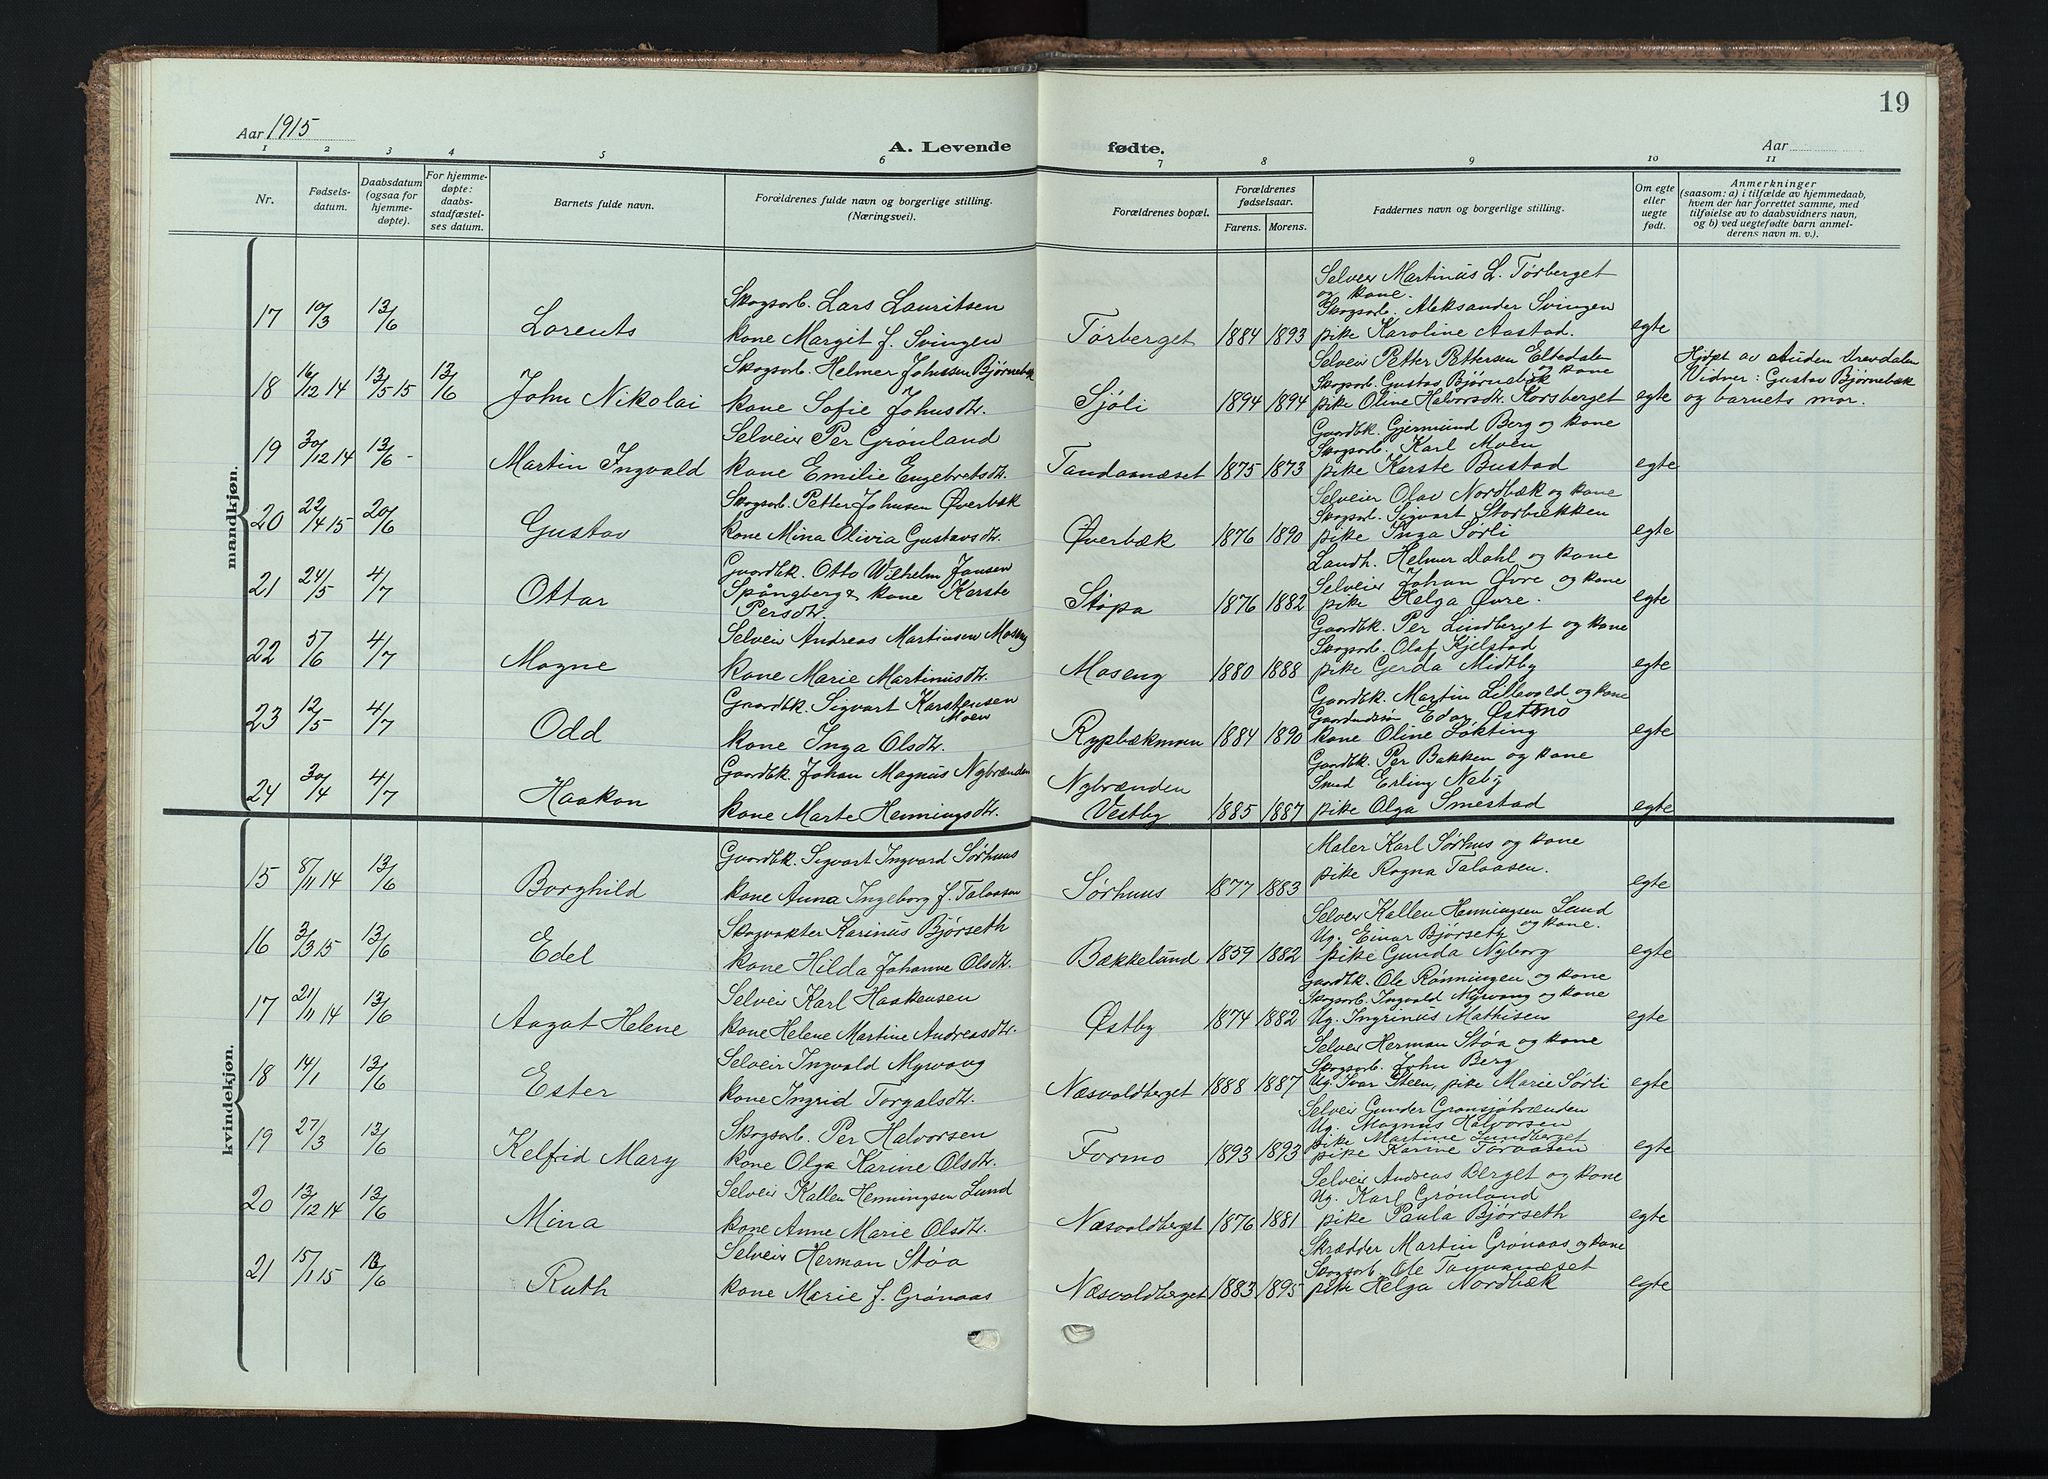 19
Aar 1915
A. Levende fødte.
Aar
1 2 3 4 5 6 7 8 9 10 11
Nr.
Fødsels-
datum.
Daabsdatum
(ogsaa for
hjemme-
døpte).
For hjemme-
døpte:
daabs-
stadfæstel-
ses datum.
Barnets fulde navn.
Forældrenes fulde navn og borgerlige stilling.
(Næringsvei).
Forældrenes bopæl.
Forældrenes
fødselsaar.
Farens. Morens.
Faddernes navn og borgerlige stilling.
Om egte
eller
uegte
født.
Anmerkninger
(saasom: a) i tilfælde av hjemmedaab,
hvem der har forrettet samme, med
tilføielse av to daabsvidners navn,
og b) ved uegtefødte barn anmel-
derens navn m. v.).
mandkjøn.
17 10/3 13/6 Lorents
Skogsarb. Lars Lauritsen
kone Margit f. Svingen
Tørberget 1884 1893
Selveier Martinus L. Tørberget
og kone.
Skogsarb. Aleksander Svingen
pike Karoline Aastad.
egte
18 16/12 14 13/5 15 13/6 John Nikolai
Skogsarb. Helmer Johnsen Bjørnebæk
kone Sofie Johnsdtr.
Sjøli 1894 1894
Selveier Petter Pettersen Eltedalen
og kone
Skogsarb. Gustav Bjørnebæk
pike Oline Halvorsdtr. Korsberget
egte
Hjdøpt av Auden Drevdalen
Vidner: Gustav Bjørnebæk
og barnets mor.
19 30/12 14 13/6 - Martin Ingvald
Selveier Per Grønland
kone Emilie Engebretsdtr.
Tandaanæset 1875 1873
Gaardbk. Gjermund Berg og kone
Skogsarb. Karl Moen
pike Karste Bustad
egte
20 22/4 15 20/6 Gustav
Skogsarb. Petter Johnsen Øverbæk
kone Mina Olivia Gustavsdtr.
Øverbæk 1876 1890
Selveier Olav Nordbæk og kone
Skogsarb. Sigvart Storbækken
pike Inga Sørli
egte
21 24/5 4/7 Ottar
Gaardbk. Otto Wilhelm Jansen
Spångberg & kone Karste
Persdtr.
Støpa 1876 1882
Landh. Helmer Dahl og kone
Selveier Johan Øvre og kone
pike Helga Øvre.
egte
22 5/6 4/7 Magne
Selveier Andreas Martinsen Moseng
kone Marie Martinusdtr.
Moseng 1880 1888
Gaardbk. Per Lindberget og kone
Skogsarb. Olaf Kjelstad
pike Gerda Midtby
egte
23 12/5 4/7 Odd
Gaardbk. Sigvart Karstensen
Moen
kone Inga Olsdtr.
Rypbækmoen 1884 1890
Gaardbk. Martin Lillevold og kone
Edar Østmo
kone Oline Løkting
egte
24 30/4 4/7 Haakon
Gaardbk. Johan Magnus Nybrænden
kone Marte Henningsdtr.
Nybrænden
Vestby 1885 1887
Gaardbk. Per Bakken og kone
Smed Erling Neby
pike Olga Smestad
egte
kvindekjøn.
15 8/11 14 13/6 Borghild
Gaardbk. Sigvart Ingvard Sørhuus
kone Anna Ingeborg f. Talaasen
Sørhuus 1877 1883
Maler Karl Sørhus og kone
pike Ragna Talaasen.
egte
16 3/3 15 13/6 Edel
Skogvakter Karinus Bjørseth
kone Hilda Johanne Olsdtr.
Bækkelund 1859 1882
Selveier Kallen Henningsen Lund
Ug. Einar Bjørseth og kone.
pike Gunda Nyborg
egte
17 21/11 14 13/6 Aagot Helene
Selveier Karl Haakensen
kone Helene Martine Andreasdtr.
Østby 1874 1882
Gaardbk. Ole Rønningen og kone
Skogsarb. Ingvald Myrvang og kone
Ug. Ingrinus Mathisen
egte
18 14/1 13/6 Ester
Selveier Ingvald Myrvang
kone Ingrid Torgalsdtr.
Næsvoldberget 1888 1887
Selveier Herman Støa og kone
Skogsarb. John Berg
Ug. Ivar Steen, pike Marie Sørli
egte
19 27/3 13/6 Kelfrid Mary
Skogsarb. Per Halvorsen
kone Olga Karine Olsdtr.
Formo 1893 1893
Selveier Gunder Grønsjøbrænden
Ug. Magnus Halvorsen
pike Martine Lundberget
pike Karine Torvaasen
egte
20 13/12 14 13/6 Mina
Selveier Kallen Henningsen Lund
kone Anne Marie Olsdtr.
Næsvoldberget 1876 1881
Selveier Andreas Berget og kone
Ug. Karl Grønland
pike Paula Bjørseth
egte
21 15/1 15 13/6 Ruth
Selveier Herman Støa
kone Marie f. Grønaas
Næsvoldberget 1883 1895
Skrædder Martin Grønaas og kone
Skogsarb. Ole Tanvanæset
pike Helga Nordbæk
egte